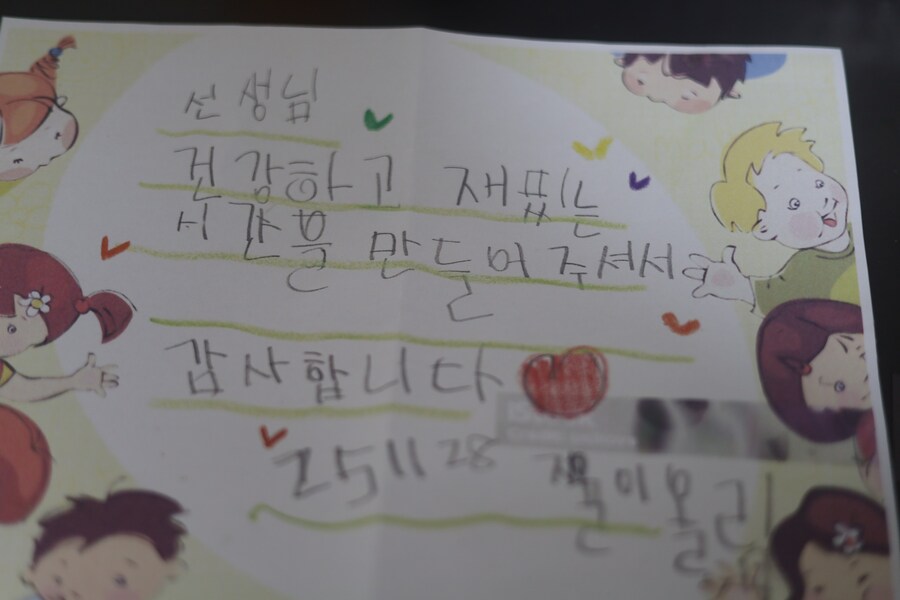 선생님
건강하고 재밌는
시간을 만들어주셔서
감사합니다
251128
올림